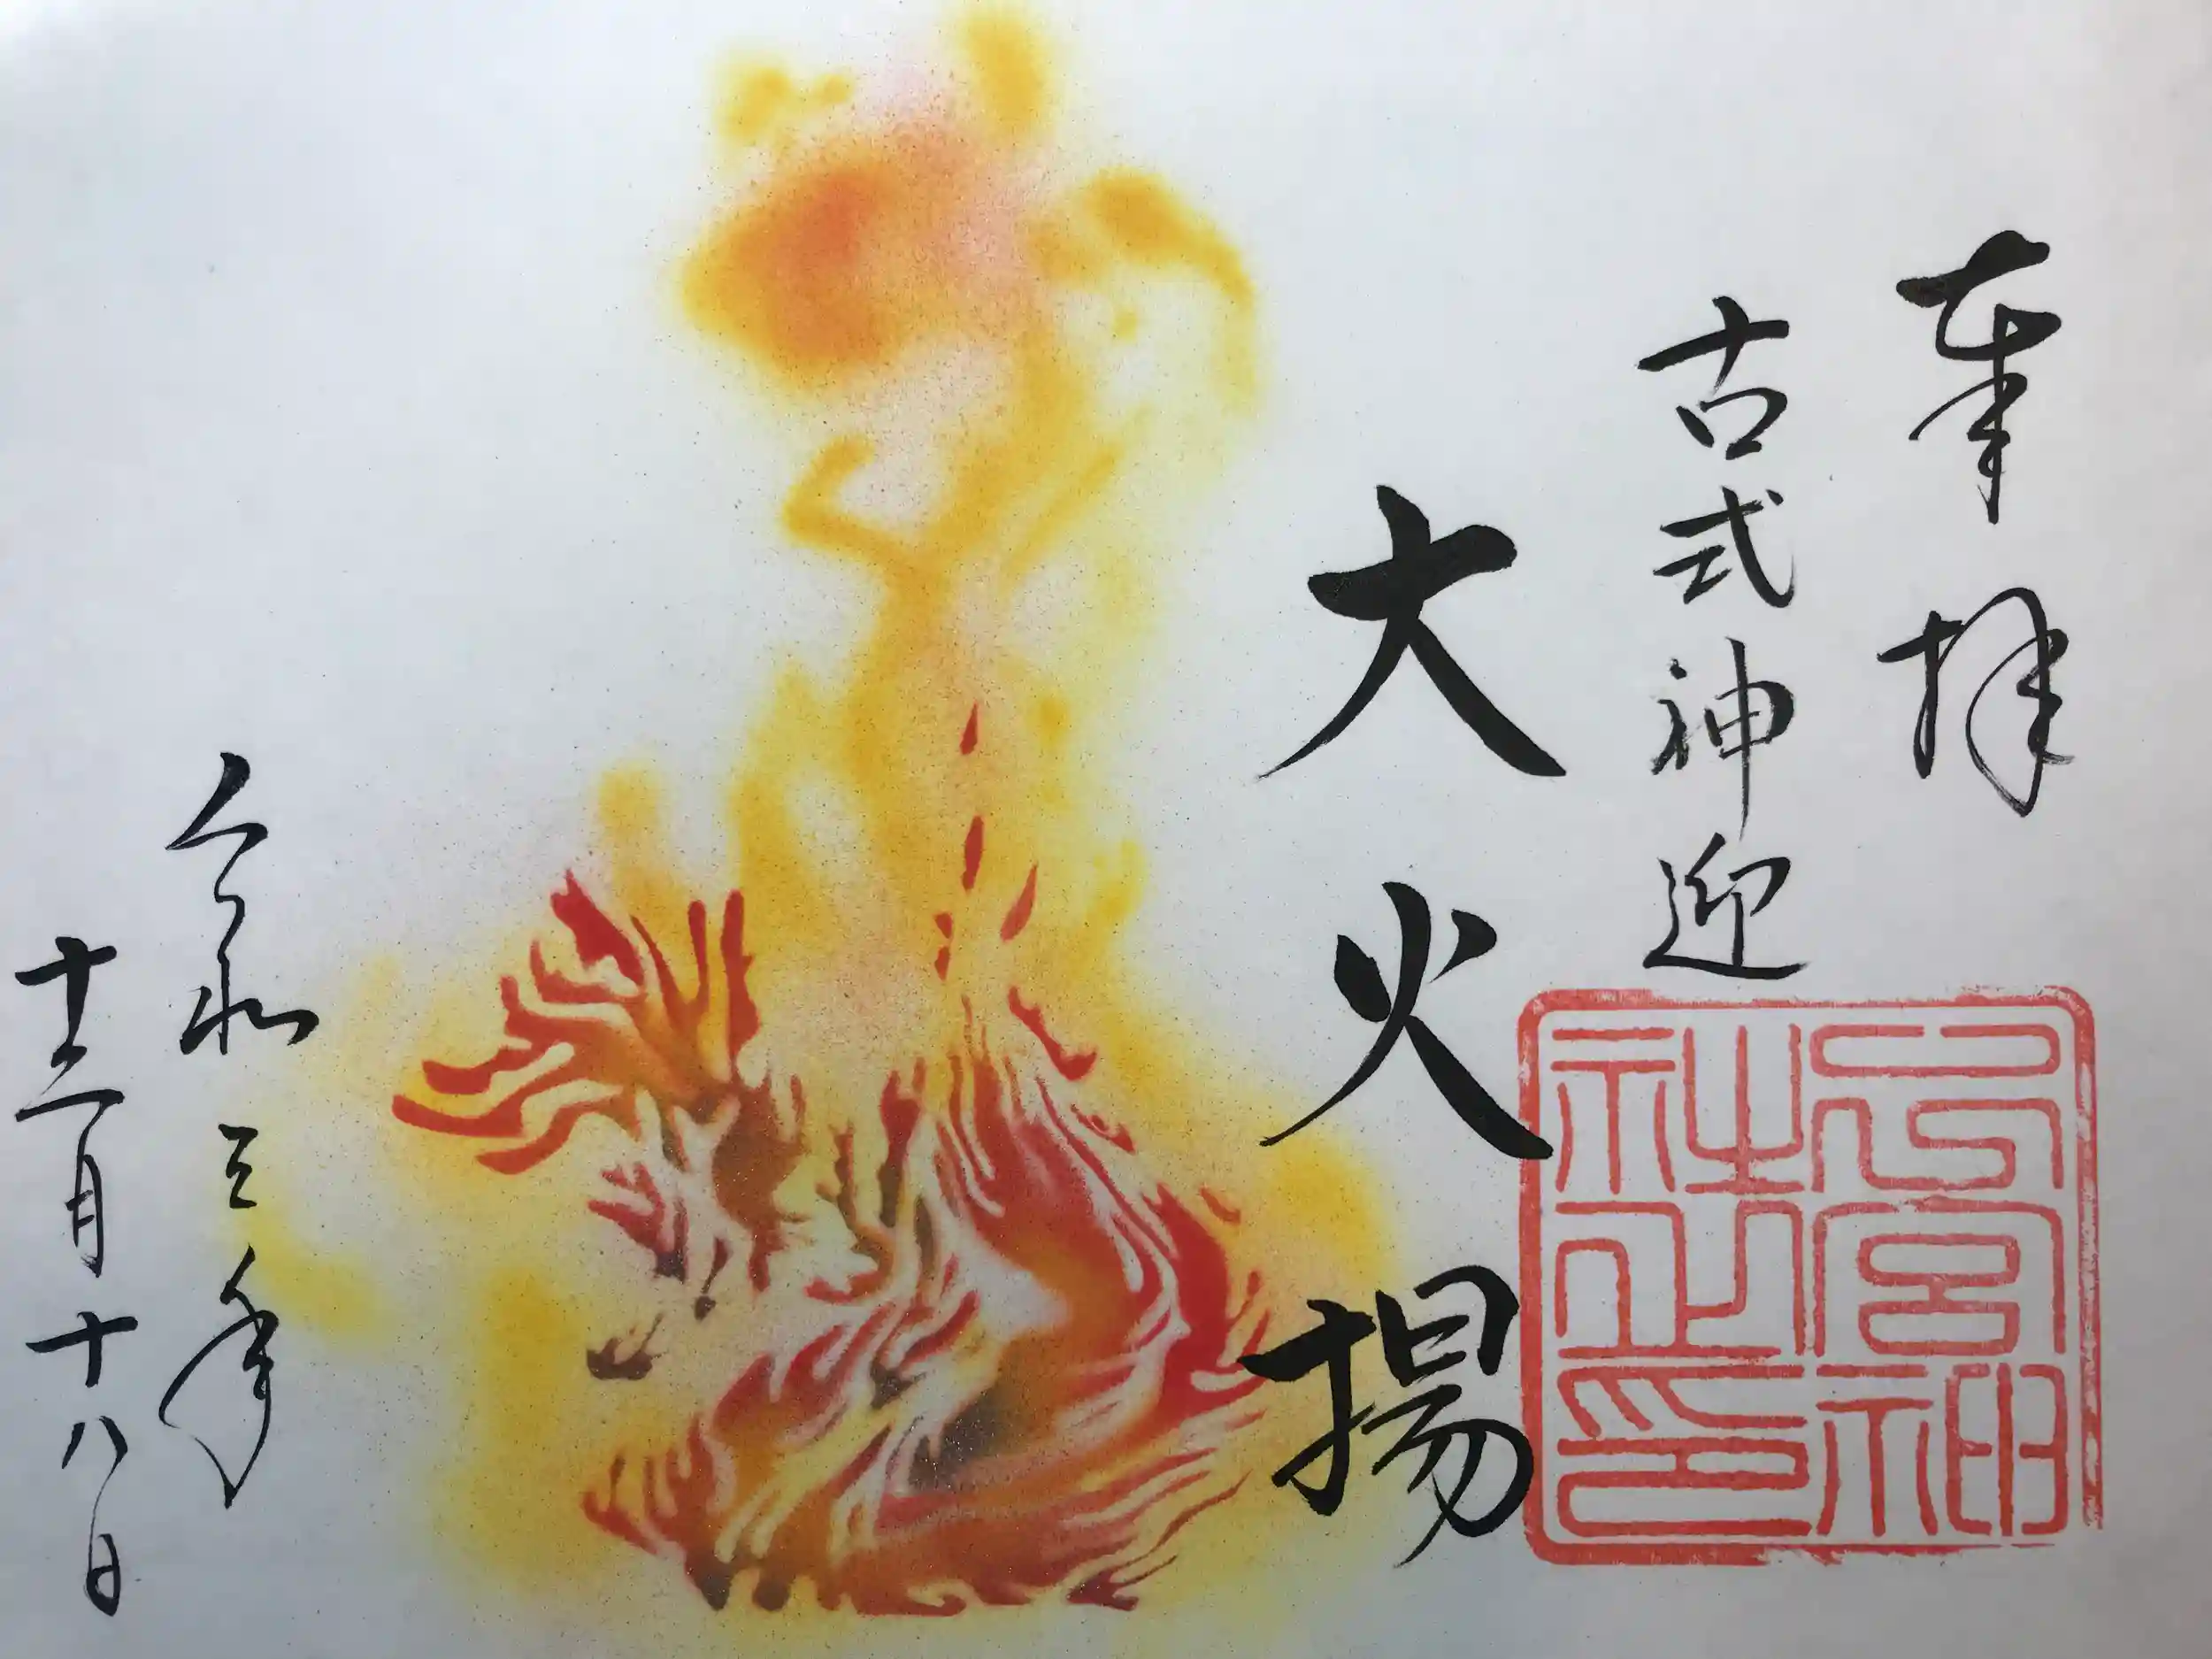 奉拝
古式神迎
大火揚
宮神
社之印
令和三年
十二月十八日